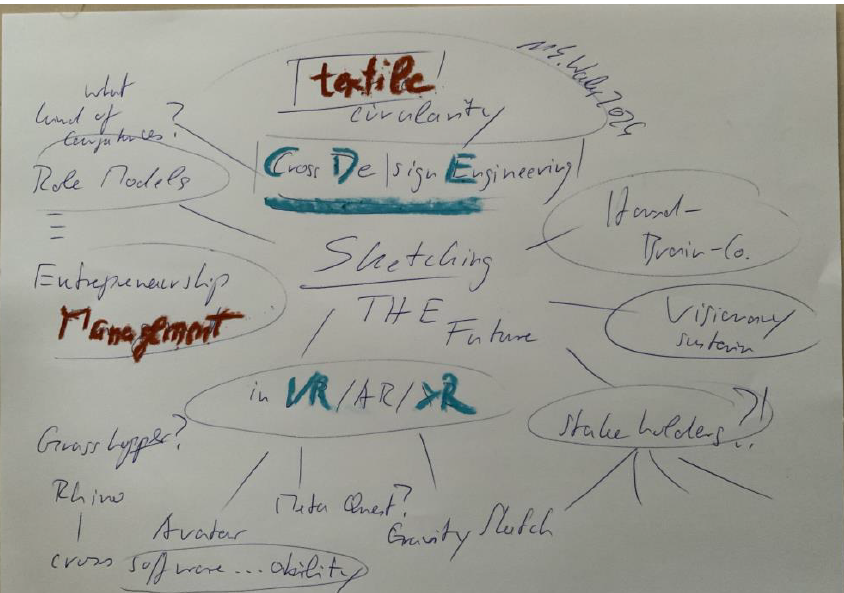 textile
circularity
what
kind of
?
Cross De|sign Engineering
Role Models
Hand-
Brain-Co.
Sketching
Entrepreneurship
THE
Management
Future
Visionary
sustain
in VR/AR/XR
stakeholders ?!
Grasshopper?
Rhino
Meta Quest?
Avatar
Gravity Sketch
cross software...ability